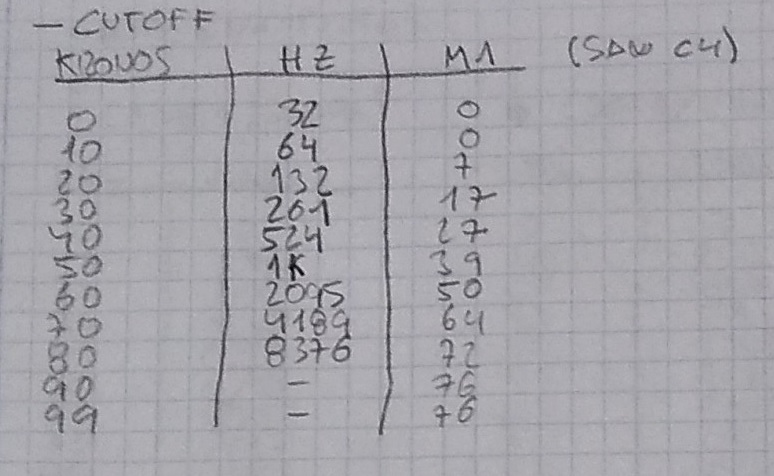 - CUTOFF
KRONOS | HZ | M1 (SAW C4)
0 | 32 | 0
10 | 64 | 0
20 | 132 | 7
30 | 261 | 17
40 | 524 | 27
50 | 1K | 39
60 | 2095 | 50
70 | 4189 | 64
80 | 8376 | 72
90 | - | 76
99 | - | 76